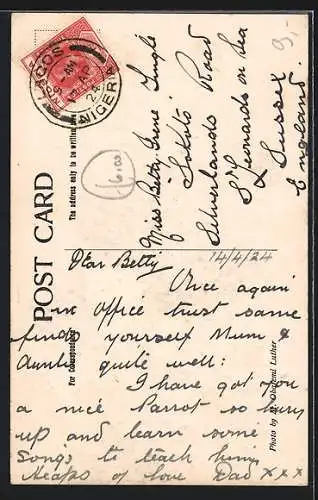 LAGOS
NIGERIA
9,-
6,00
POST CARD
The address only to be written here
For Correspondence
Miss Betty Irene Ingle
6 Sokoto Road
Silverlands Road
St Leonards on Sea
Sussex
England
14/4/24
Dear Betty
Once again
in office trust same
finds yourself Mum &
Auntie quite well:
I have got you
a nice Parrot so hurry
up and learn some
songs to teach him
Heaps of love Dad x x x
Photo by Luther